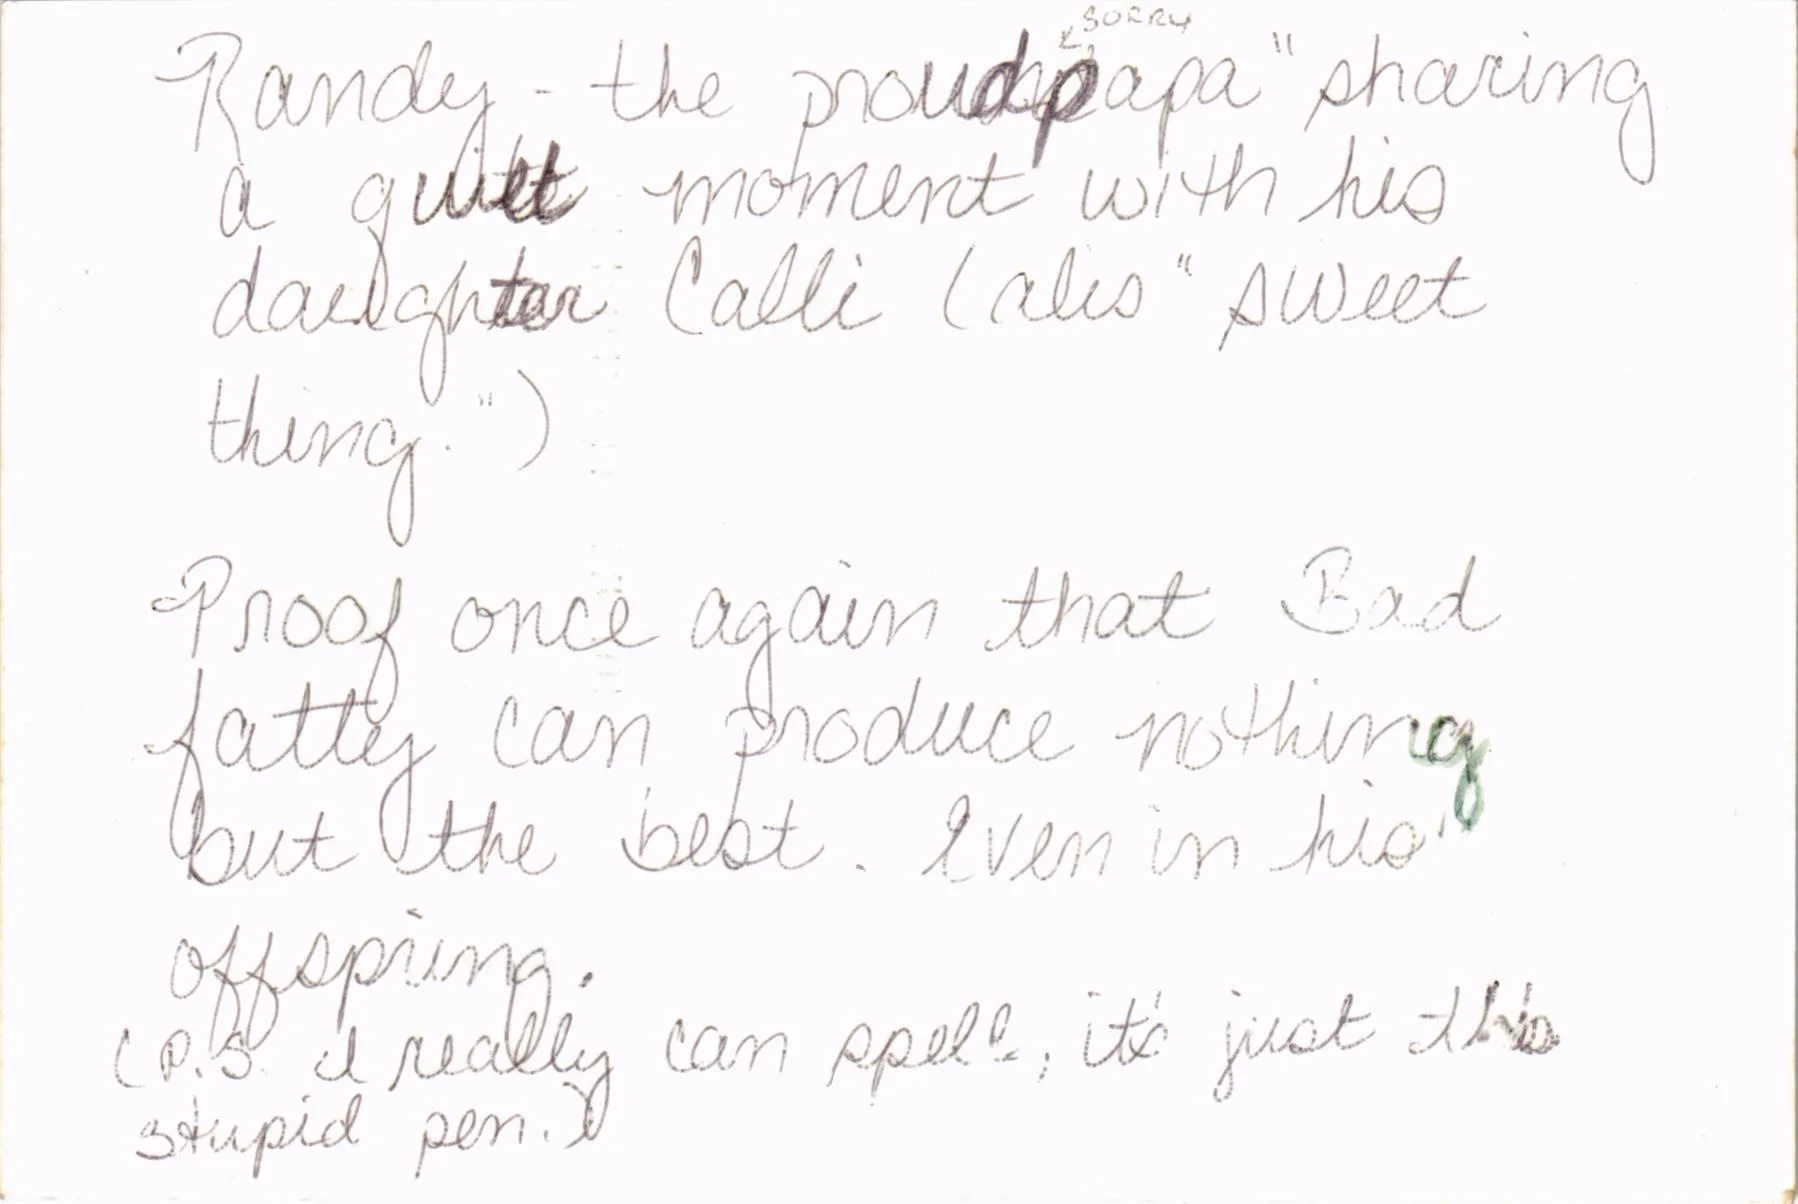 SORRY
Randy - the proud "papa" sharing
a quiet moment with his
daughter Calli (alis "sweet
thing.")
Proof once again that Bad
fatty can produce nothing
but the best. Even in his
offspring.
(P.S. I really can spell, it's just this
stupid pen.)